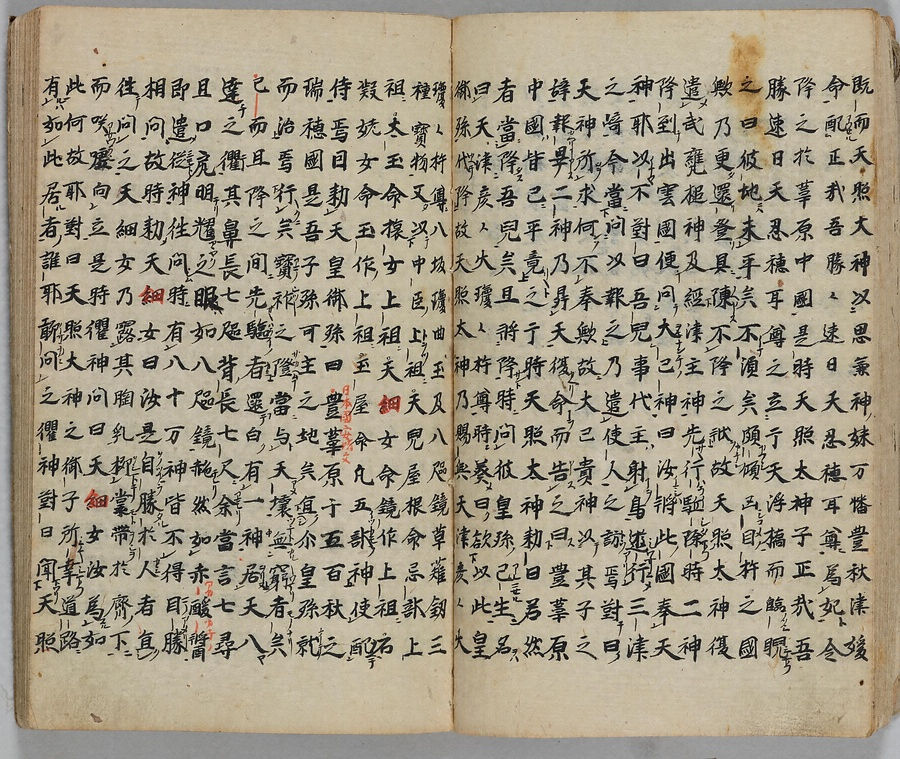 既而天照大神以思兼神妹万幡豊秋津媛
命配正我吾勝々速日天忍穂耳尊為妃令
降之於葦原中國是時天照太神子正我吾
勝速日天忍穂耳尊之立于天浮橋而臨睨
之曰彼地未平矣不湏矣頗傾凶目杵之國
歟乃更還登具陳不降之狀故天照太神復
遣武甕槌神及經津主神先行駈除時二神
降到出雲國便問大己神曰汝將此國奉天
神耶以不對曰吾兒事代主射鳥遊行三津
之﨑今當問以報之乃遣使人訪焉對曰
天神所求何不奉歟故大己貴神以其子之
辞報畢二神乃昇天復命而告之曰豊葦原
中國皆已平竟之于時天照太神勅曰若然
者當降吾兒矣且將降時問彼皇孫已生名
曰天津彦々火瓊々杵尊時奏曰欲以此皇
御孫代降故天照太神乃賜與天津彦々火
瓊々杵尊八坂瓊曲玉及八咫鏡草薙劔三
種寶物又以中臣上祖天兒屋根命忌部上
祖太玉命猿女上祖天細女命鏡作上祖石
凝姥女命玉作上祖玉屋命凡五部神使配
侍焉因勅天皇御孫曰豊葦原千五百秋之
瑞穂國是吾子孫可主之地矣宜尓皇孫就
而治焉行矣寶祚之隆當与天壤無窮者矣
已而且降之間先駈者還白有一神居天八
達之衢其鼻長七咫背長七尺余當言七尋
且口尻明耀之眼如八咫鏡赩然如赤酸醤
即遣從神往問時有八十万神皆不得目勝
相問故時勅天細女曰汝是自勝於人者宜
往問之天細女乃露其胸乳抑裳帶於齊下
而咲噱向立是時衢神問曰天細女汝為如
此何故耶對曰天照大神之御子所幸道路
有如此居者誰耶敢問之衢神對曰聞天照